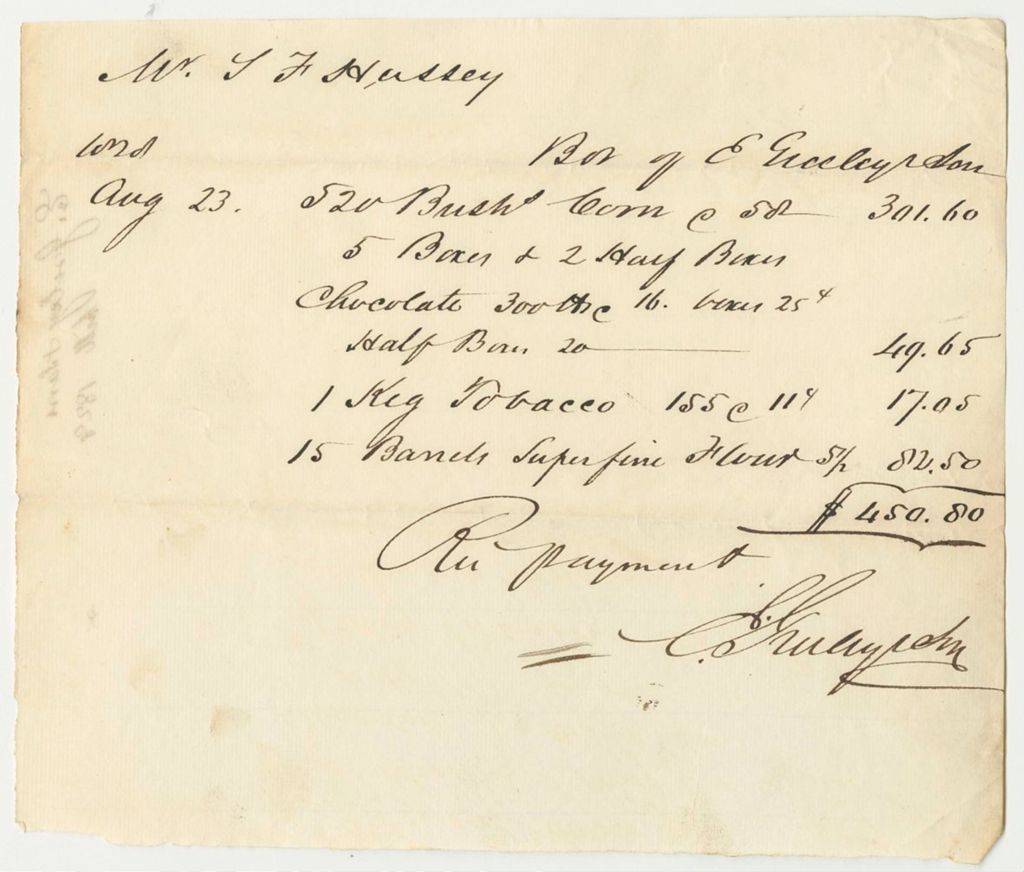 Mr. S F Hussey
1828
Bot of E Greeley & Son
Aug 23. 520 Bush.s Corn @ 58 301.60
5 Boxes & 2 Half Boxes
Chocolate 300 lb @ 16. boxes 25 cts
Half Boxes 20 49.65
1 Keg Tobacco 155 @ 11 cts 17.05
15 Barrels Superfine Flour 5½ 82.50
$ 450.80
Rec payment
E. Greeley & Son
E. Greeley & Sons
Bill 1828